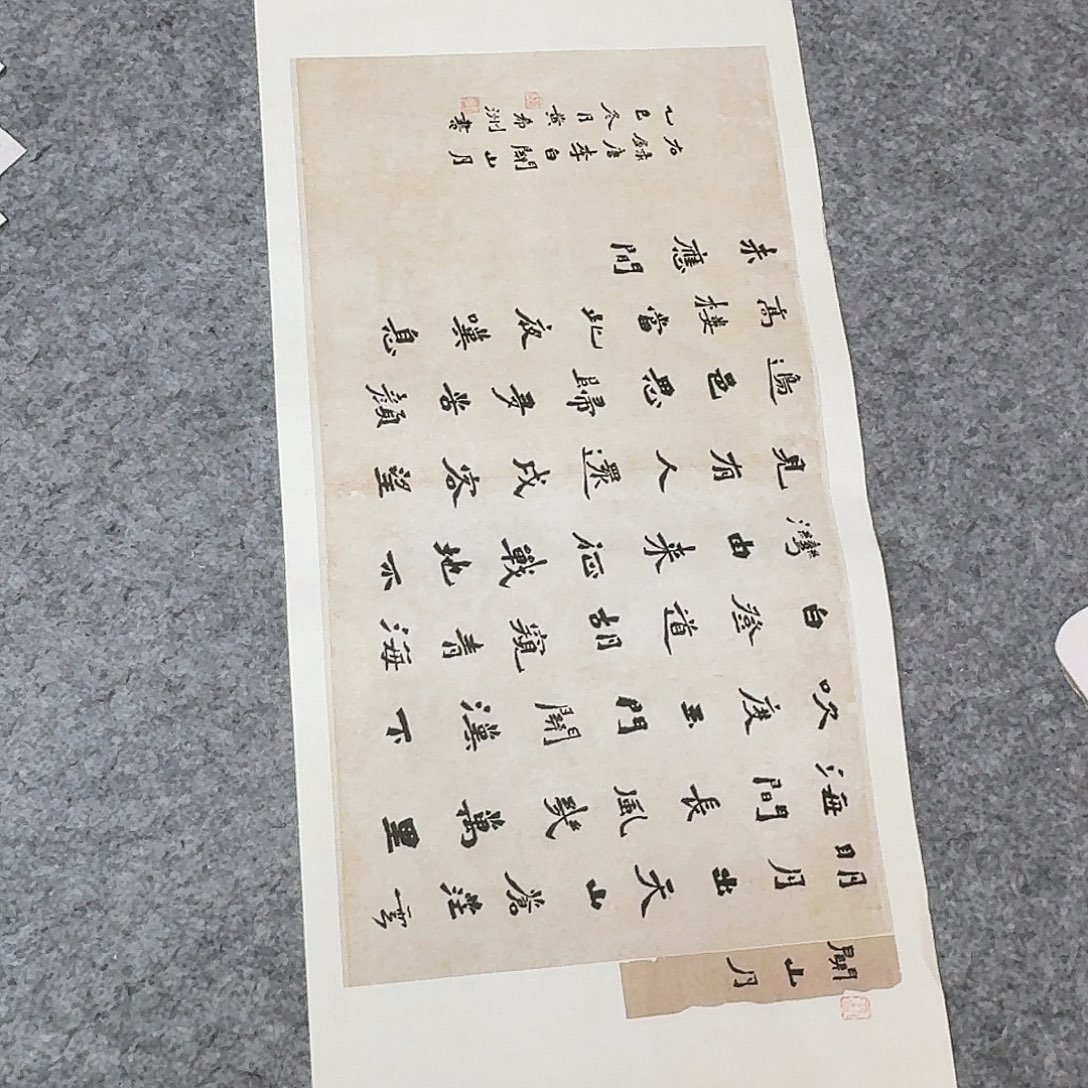 關山月
明月出天山蒼茫雲
海間長風幾萬里
吹度玉門關漢下
白登道胡窺青海
灣由來征戰地不
見有人還戍客望
邊邑思歸多苦顏
高樓當此夜嘆息
未應間
右錄唐李白關山月
乙巳冬月黃希洲書